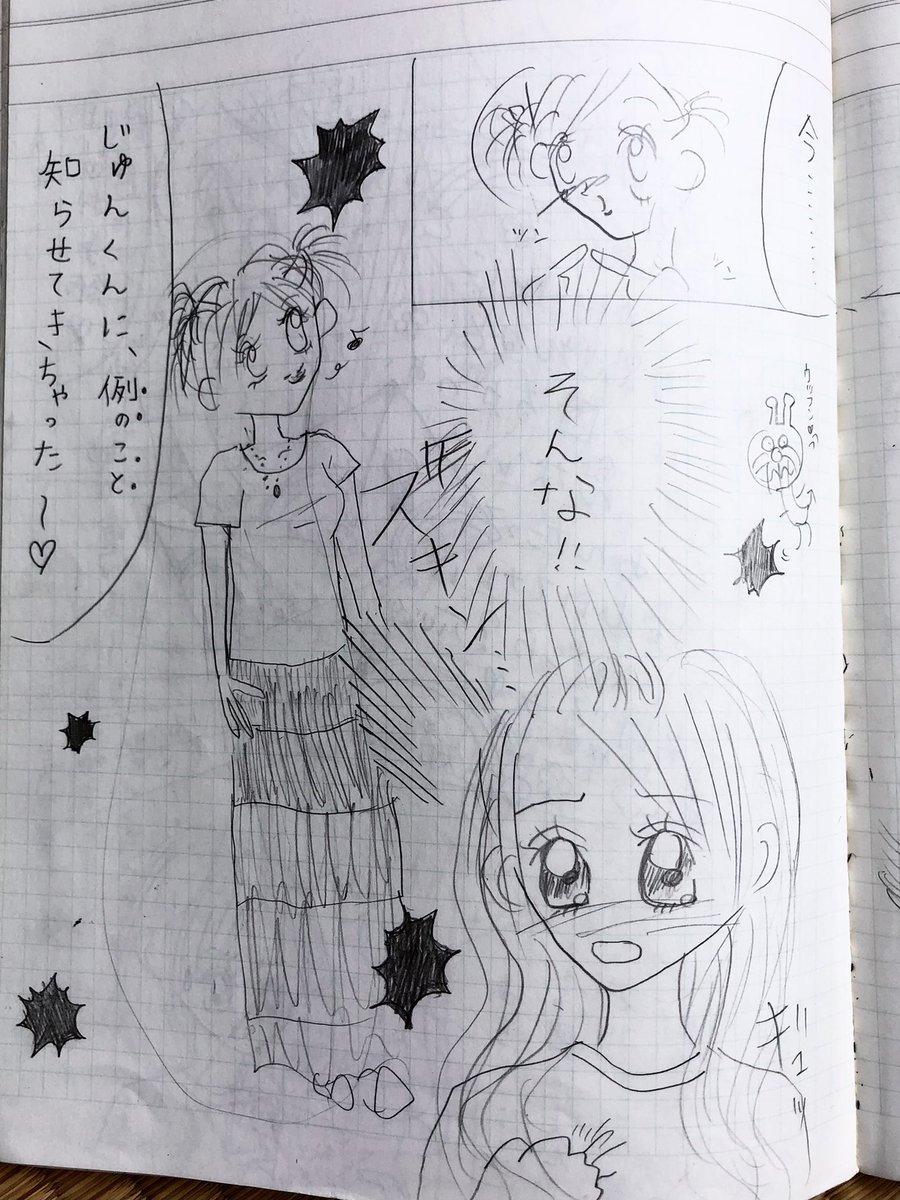 今…………
ツン
ツン
そんな!!
ズキンッ
ギュッ
じゅんくんに、例のこと
知らせてきちゃった〜♡